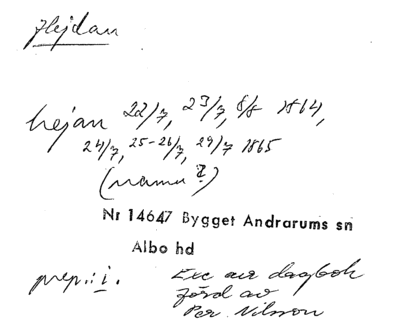 Hejdan
hejan 22/7, 23/7, 8/8 1864,
24/7, 25-26/7, 29/7 1865
(namn ?)
Nr 14647 Bygget Andrarums sn
Albo hd
prep.: i. Exc ur dagbok
förd av
Per Nilsson